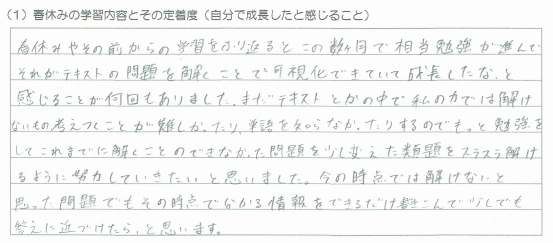 (1) 春休みの学習内容とその定着度（自分で成長したと感じること）
春休みやその前からの学習をふり返るとこの数ヶ月で相当勉強が進んで
それがテキストの問題を解くことで可視化できていて成長したな、と
感じることが何回もありました。まだテキストとかの中で私の力では解け
ないもの考えつくことが難しかったり、単語を知らなかったりするのでもっと勉強を
してこれまでに解くことのできなかった問題を少し変えた類題をスラスラ解け
るように努力していきたいと思いました。今の時点では解けないと
思った問題でもその時点でわかる情報をできるだけ書きこんで少しでも
答えに近づけたら、と思います。